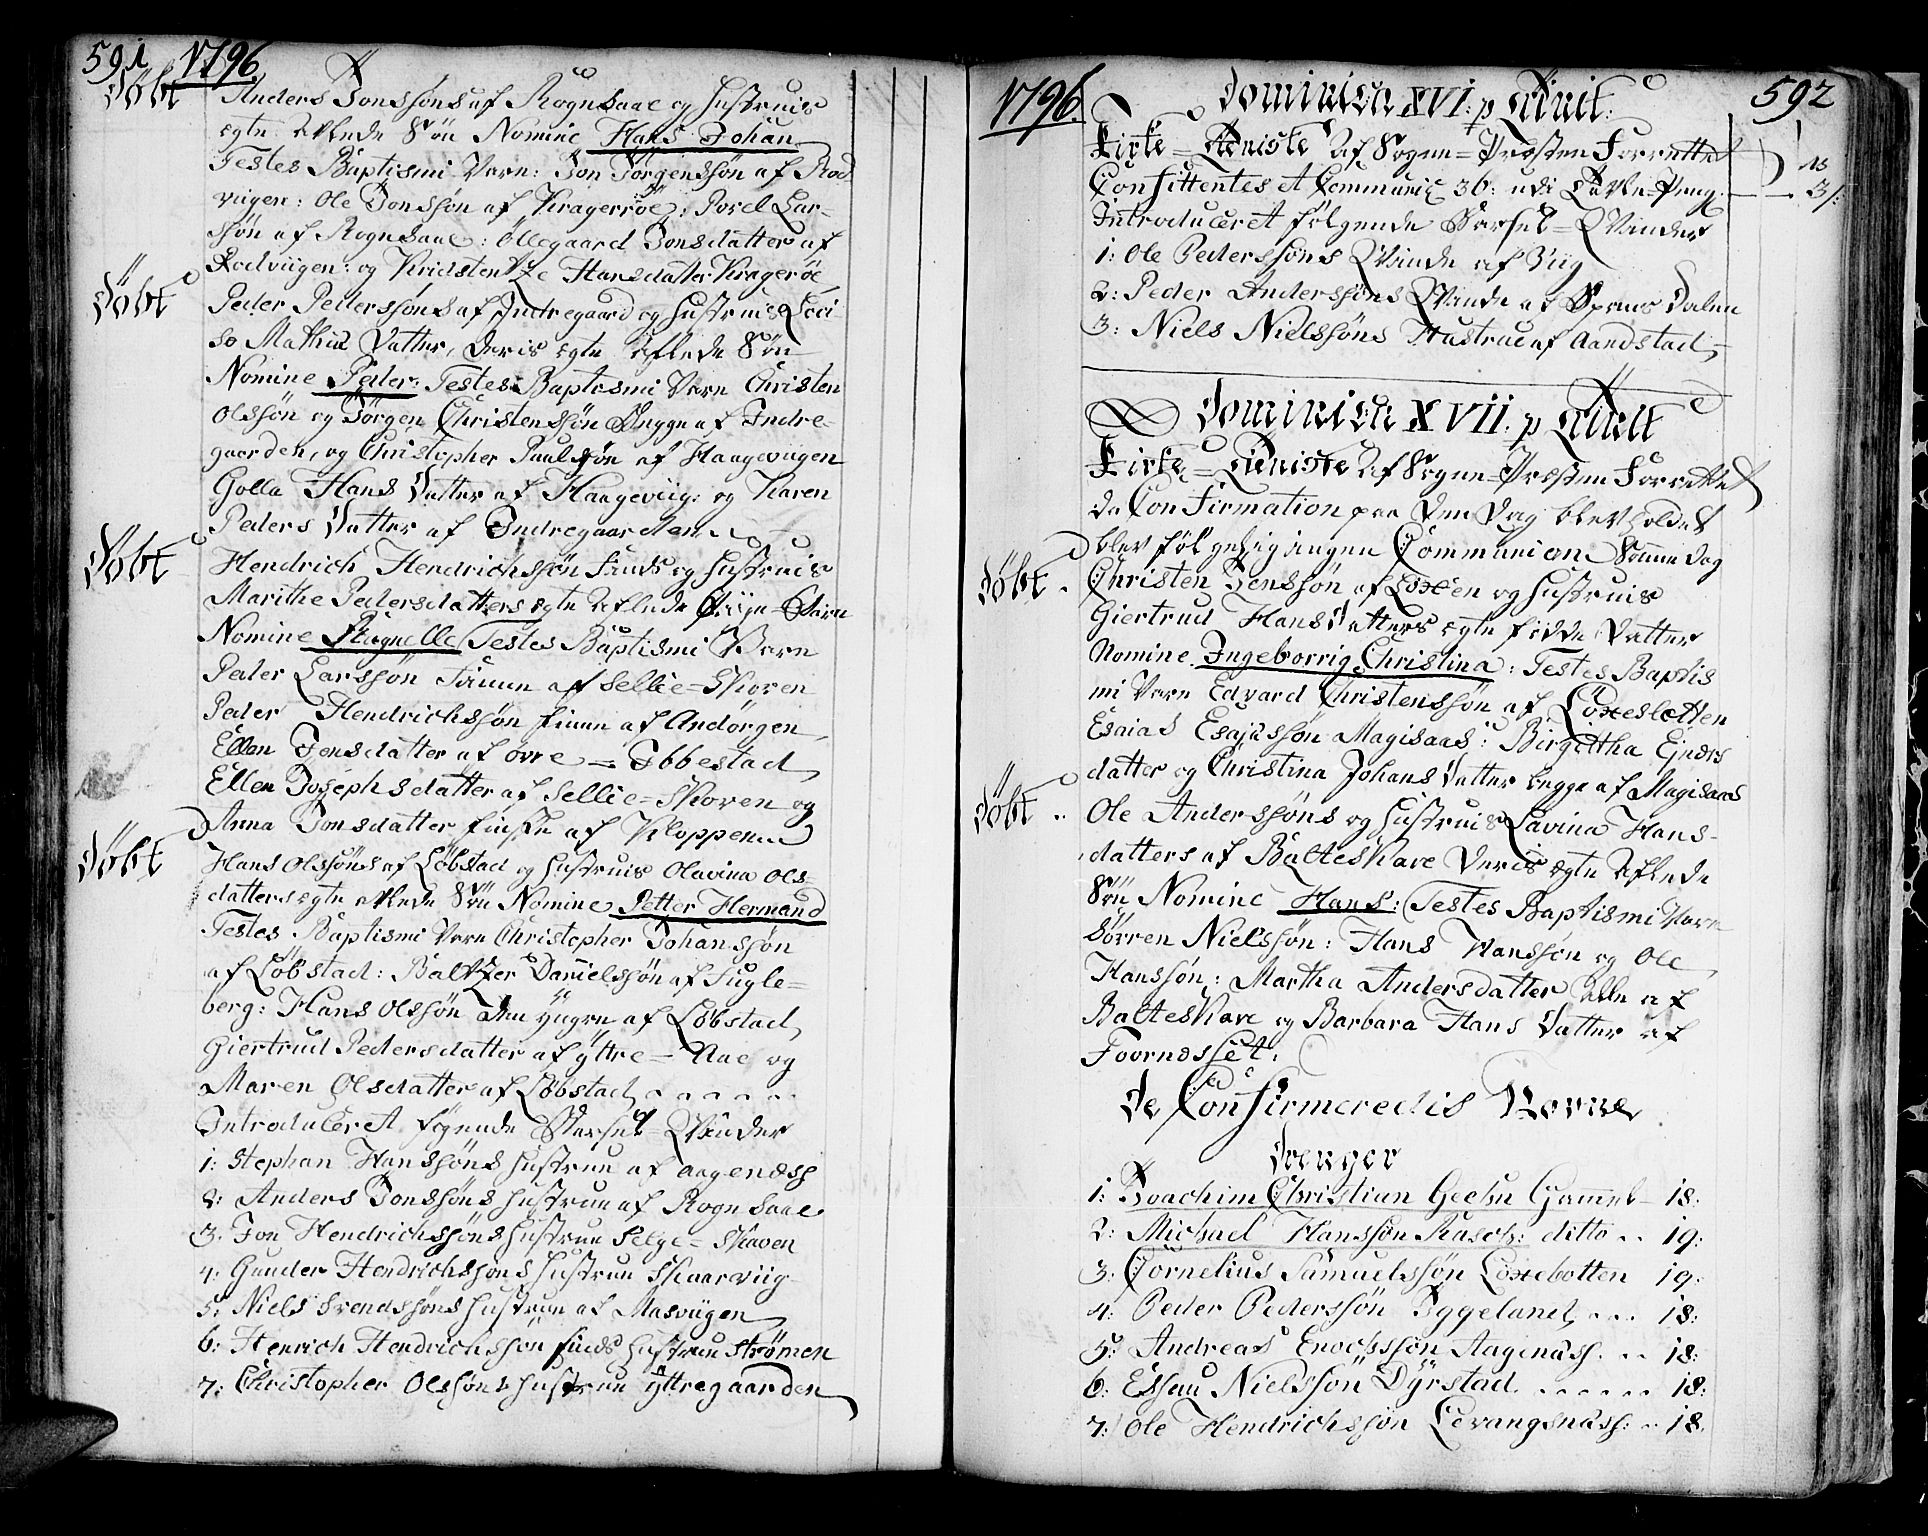 591 1796
Döbt Anders Jonssöns af Rognsaae og Hustrues
ægte Aflede Sön Nomine Hans Johan
Testes Baptismi Vare: Jon Jörgenssön af Rod
viigen: Ole Jonssön af Krageröe: Povel Lar-
ssön af Rognsaae: Ollegaard Jonsdatter af
Rodviigen: og Kridstentze Hansdatter Krageröe
Döbt Peder Pederssöns af Indregaard og Hustrues Loci
so Mathiæ Datter, Deris ægte Aflede Sön
Nomine Peder: Testes Baptismi Vare Christen
Olssön og Jörgen Christenssön Begge af Indre-
gaarden, og Christopher Paulssön af Haageviigen
Golla Hans Datter af Haageviig: og Karen
Peders Datter af Indregaarden
Döbt Hendrich Hendrichssön Finds og Hustrues
Marithe Pedersdatters ægte Aflede Piige-Barn
Nomine Ragnelle Testes Baptismi Vare
Peder Larssön Finne af Sellie-Skoven
Peder Hendrichssön finne af Andörgen
Ellen Jensdatter af övre = Ibbestad
Ellen Josephsdatter af Sellie=Skoven og
Anna Jonsdatter finske af Kloppen
Döbt Hans Olssöns af Löbstad og Hustrues Olavina Ols-
datters ægte Aflede Sön Nomine Petter Hermand
Testes Baptismi Vare Christopher Johanssön
af Löbstad: Baltzer Danielssön af Fugle=
berg: Hans Olssön Den yngre af Löbstad
Giertrud Pedersdatter af yttre=Aae og
Maren Olsdatter af Löbstad
Introduceret fögende Barsel=Qvinder
1: Stephan Hanssöns Hustrue af Aagenæss
2: Anders Jonssöns Hustrue af Rognsaae
3: Jon Hendrichssöns Hustrue Selge=Skaven
4: Gunder Hendrichssöns Hustrue Skaarviig
5: Niels Svendssöns Hustrue af Masviigen
6: Henrich Hendrichssön Finds Hustrue Strömen
7: Christopher Olssöns Hustrue yttregaarden
1796. Dominica XVI. p Trinit: 592
Kirke=Tieniste Af Sogne=Præsten Forrettet
Confittentes et Communic 36: udi Tavle=Peng. 2/:
Introduceret fölgende Barsel=Qvinder
1: Ole Pederssöns Qvinde af Viig
2: Peder Anderssöns Qvinde af Spans Dalen
3: Niels Nielssöns Hustrue af Aandstad
Dominica XVII. p Trinit
Kirke=Tieniste Af Sogne=Præsten Forrettet
da Confirmation paa Den Dag blev holdet
blev fölgelig ingen Communion Samme Dag
Döbt Christen Jenssön af Loxen og Hustrues
Giertrud Hans Datters ægte födde Datter
Nomine Ingeborrig Christina: Testes Baptis
mi Vare Edvard Christenssön af Löxesletten
Esaias Esajassön Magisaas: Birgittha Ejners
datter og Christina Johans Datter begge af Magisaas
Döbt Ole Anderssöns og Hustrues Lavina Hans-
datters af Balteskare Deris ægte Aflede
Sön Nomine Hans: Testes Baptismi Vare
Sörren Nielssön: Hans Hanssön og Ole
Hanssön: Martha Andersdatter Alle af
Balteskare og Barbara Hans Datter af
Foornæsset.
De Confirmeredis Navne
Drenger
1: Joachim Christian Geelm Gammel 18:
2: Michael Hanssön Rasch: ditto 19:
3: Cornelius Samuelssön Löxebotten 19:
4: Peder Pederssön Byggeland 18:
5: Andreas Enochssön Aaginæss 18:
6: Essau Nielssön Dÿrstad 18:
7: Ole Hendrichssön Levangsnæss: 18.